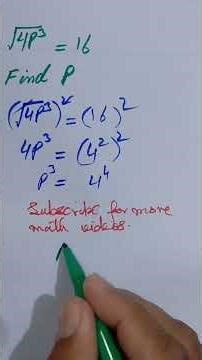 √4P³ = 16
Find P
(√4P³)² = (16)²
4P³ = (4²)²
P³ = 4⁴
Subscribe for more
math videos.